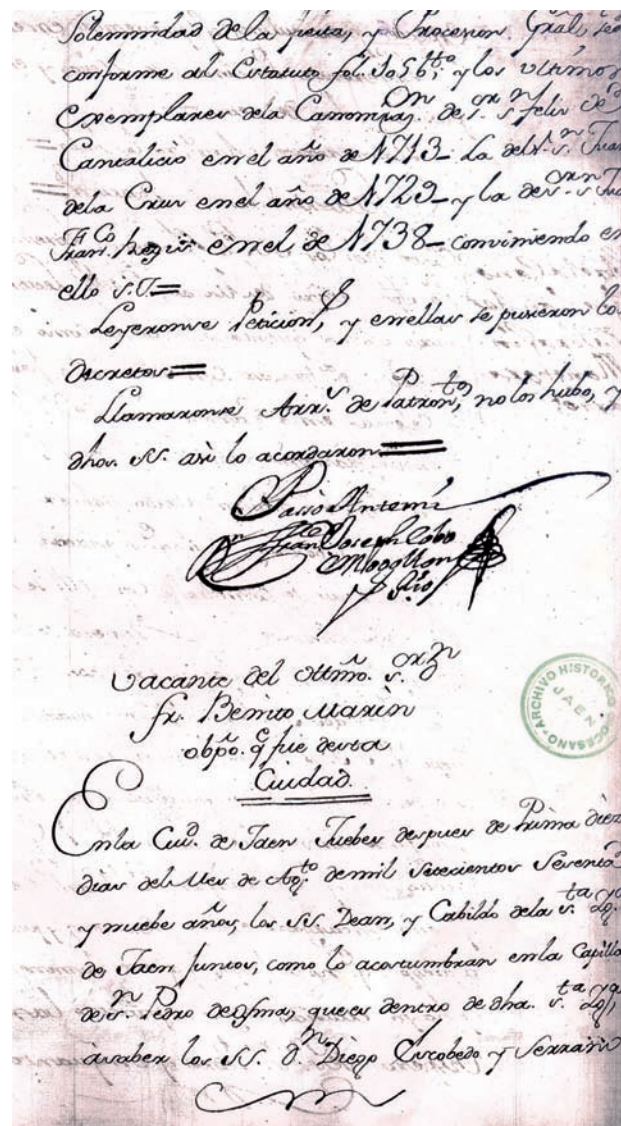 Solemnidad de la fiesta, y Procesion Gral,
conforme al Estatuto fol. 1056to, y los ultimos
exemplares dela Canonizaon. de sor. sn Felix de
Cantalicio en el año de 1713_ La del
dela Cruz en el año de 1729_ y la de sor. sn
Franco. Regis en el de 1738_ conviniendo en
ello s.I.=
Leyeronse Peticion, y en ellas se pusieron los
decretos=
Llamaronse Arrs. de Patronto, no los hubo, y
dhos. SS. asi lo acordaron=
Passo Antemi
Franco Joseph Cobo
Mogollon
Srio
Vacante del Illmo. sor. Dn
fr. Benito Marin
obpo. q fue desta
Ciudad.
En la Ciud. de Jaen Jueves despues de Prima diez
dias del Mes de Agto. de mil setecientos sesenta
y nuebe años, los SS. Dean, y Cabildo dela sta. Yga.
de Jaen juntos, como lo acostumbran en la Capilla
de sn. Pedro de Osma, que es dentro de dha. sta. Yga,
a saber los SS. Dn. Diego Escobedo y Serrano
ARCHIVO HISTORICO DIOCESANO-
JAEN